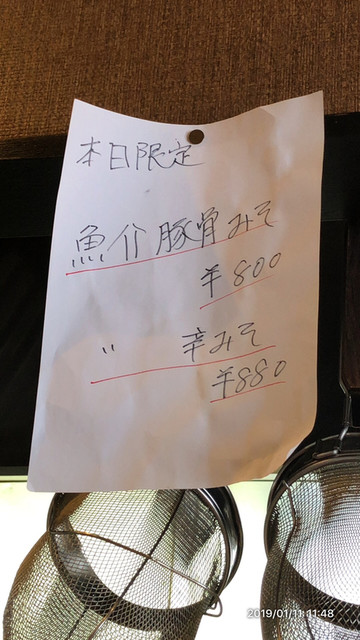 本日限定
魚介豚骨みそ
¥800
〃 辛みそ
¥880
2019/01/11 11:48